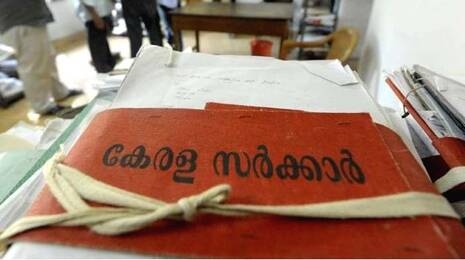 കേരള സർക്കാർ